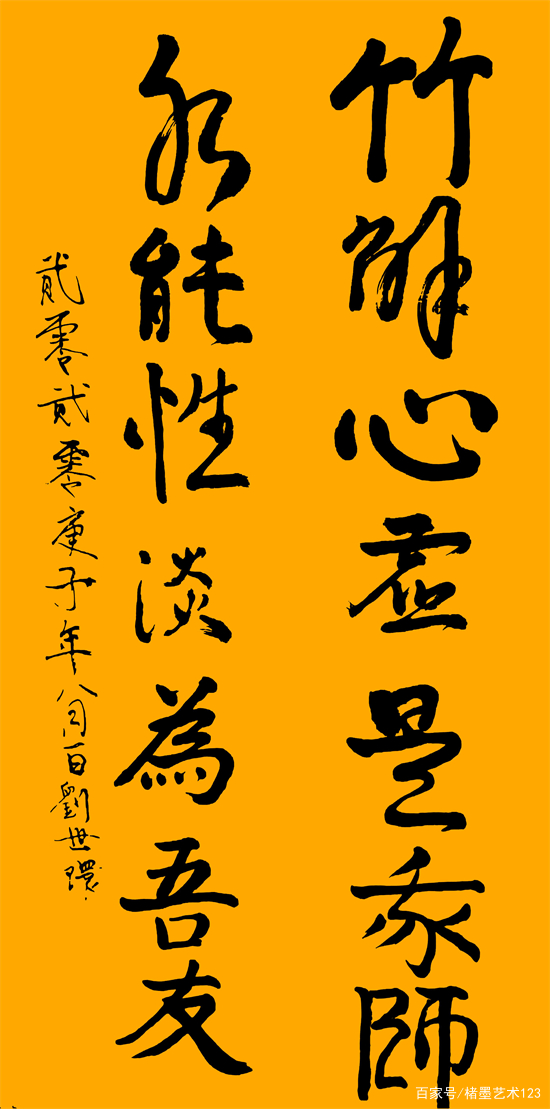 竹解心虛是我師
水能性淡為吾友
貳零貳零庚子年八月一日劉世環
百家号/楮墨艺术123